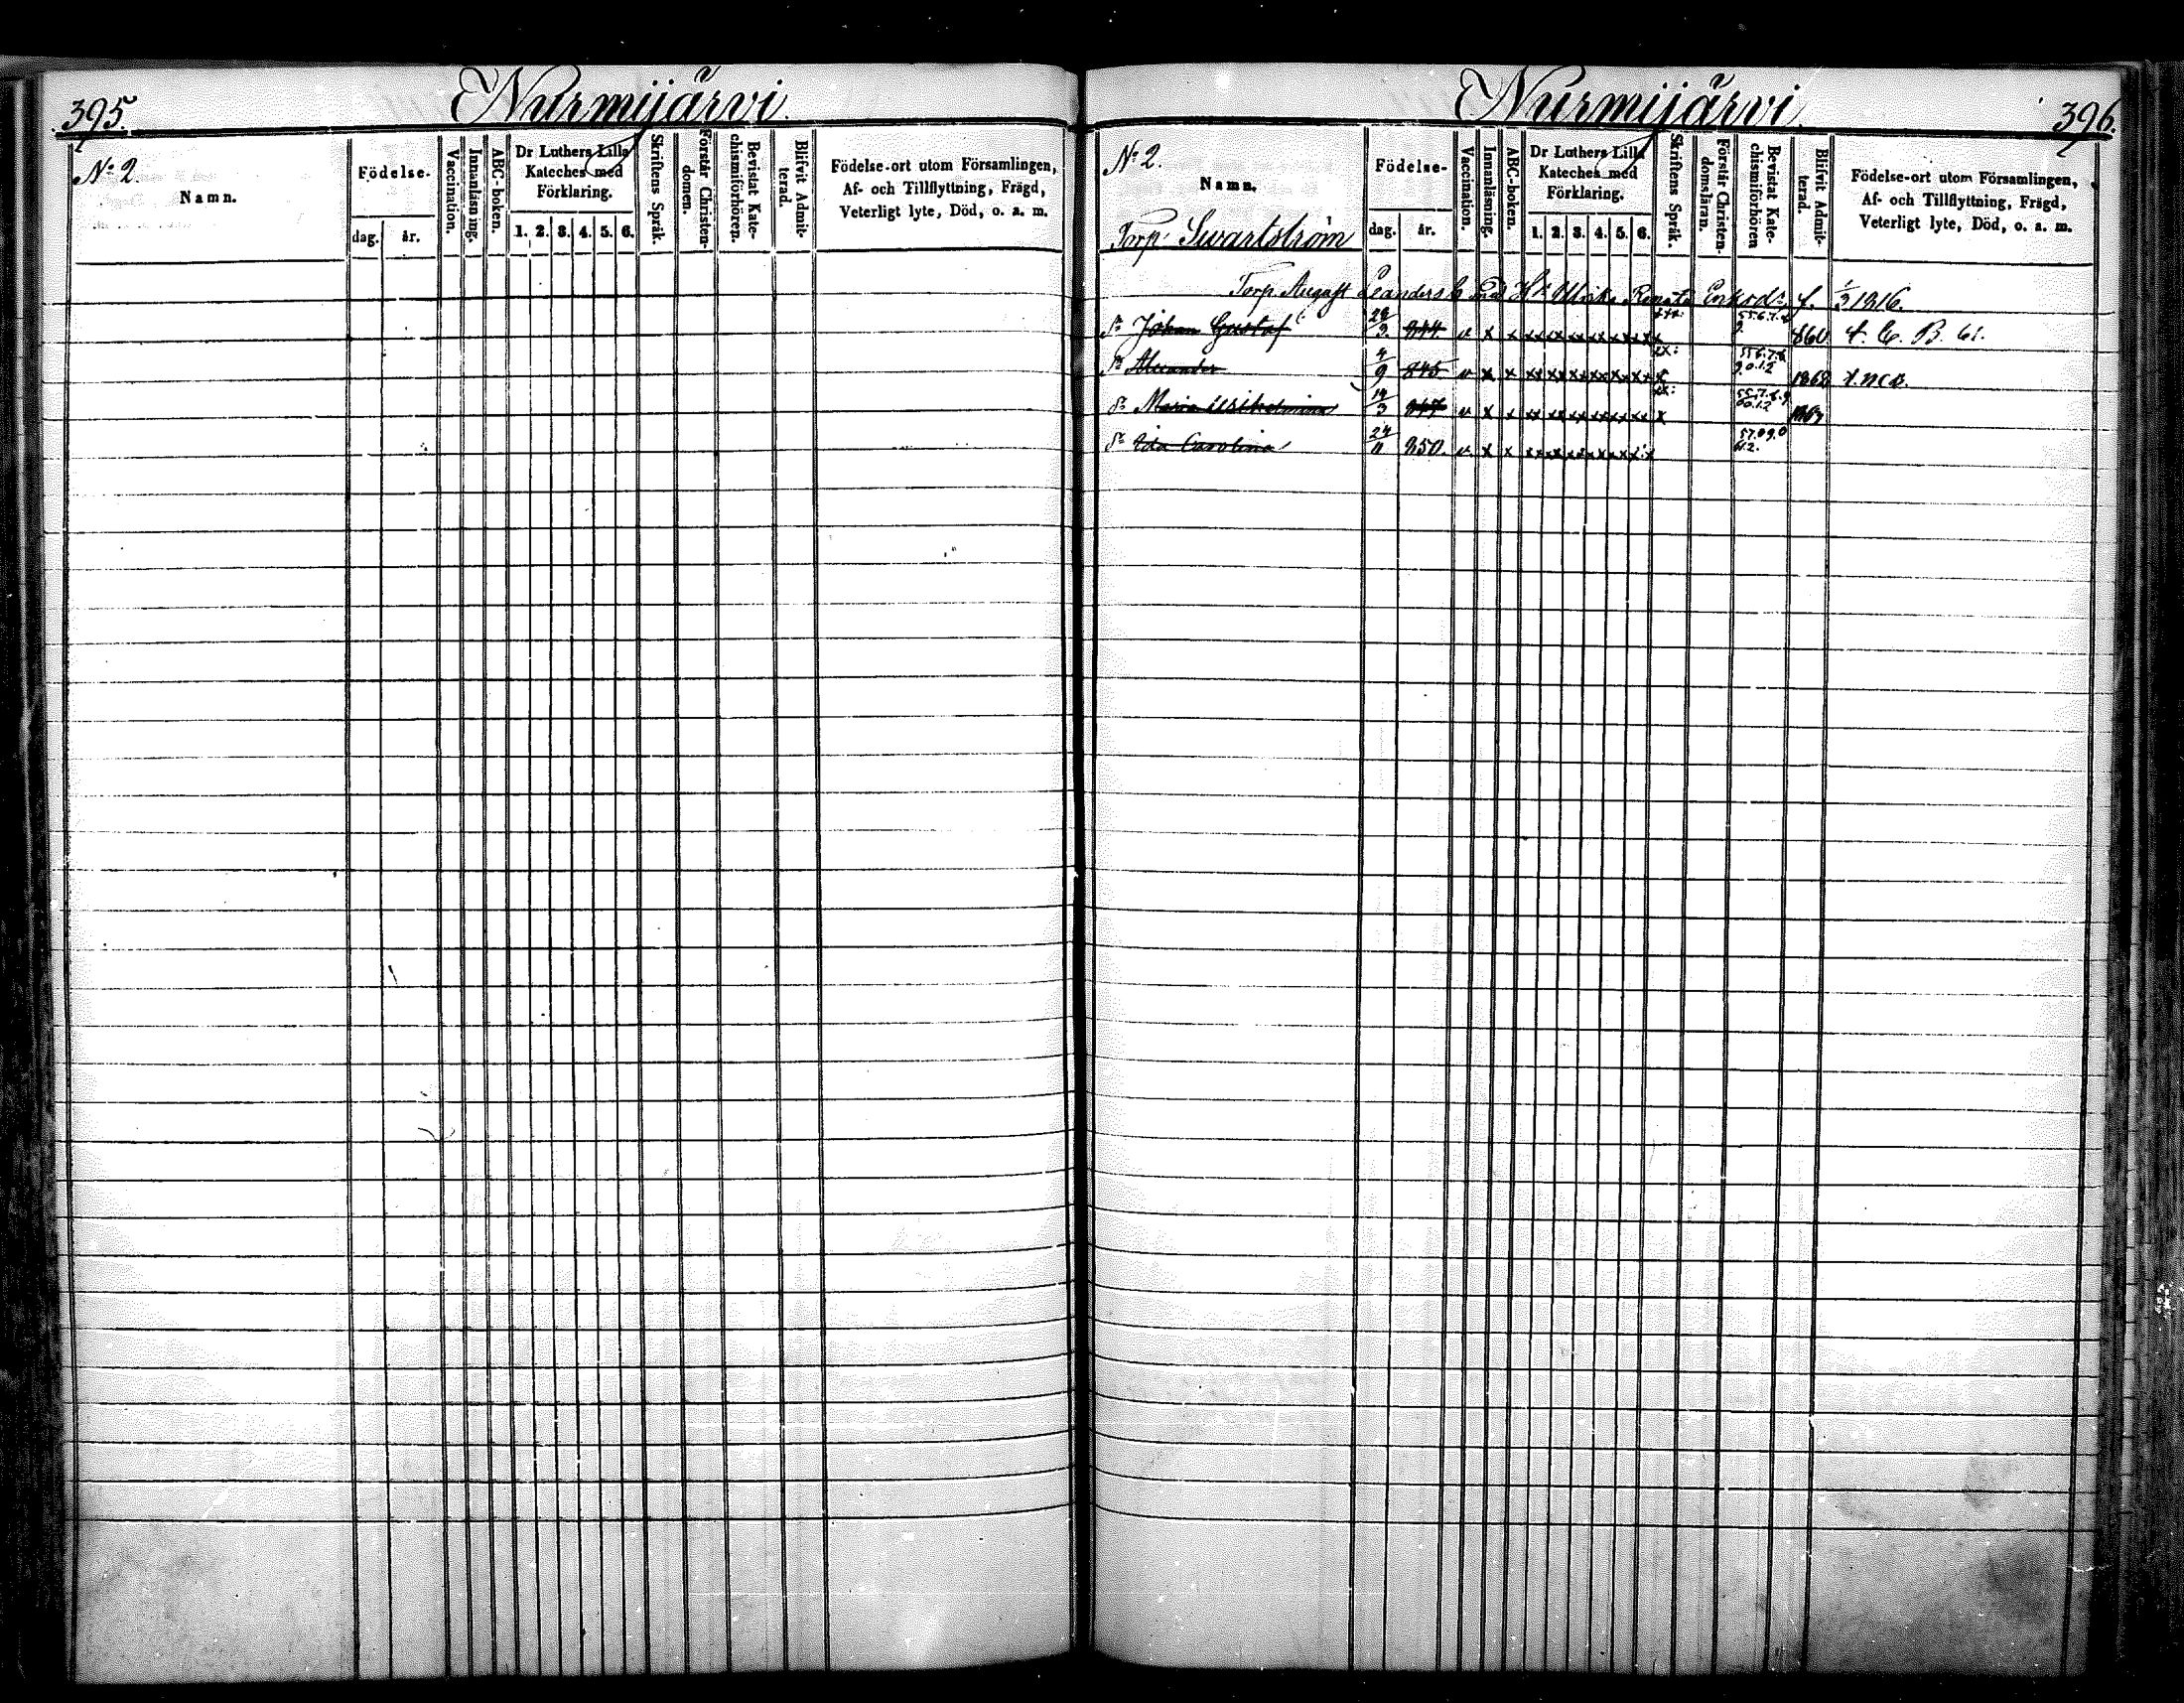 395.
Nurmijärvi.
No 2.
Namn.
Födelse.
dag.
år.
Vaccination.
Innanläsning.
ABC-boken.
Dr Luthers Lilla
Kateches med
Förklaring.
1. 2. 3. 4. 5. 6.
Skriftens Språk.
Förstår Christen-
domen.
Bevistat Kate-
chismiförhören.
Blifvit Admit-
terad.
Födelse-ort utom Församlingen,
Af- och Tillflyttning, Frägd,
Veterligt lyte, Död, o. a. m.
Nurmijärvi.
396.
No 2.
Namn.
Torp. Swartström
Födelse-
dag.
år.
Vaccination.
Innanläsning.
ABC-boken.
Dr Luthers Lilla
Kateches med
Förklaring.
1. 2. 3. 4. 5. 6.
Skriftens Språk.
Förstår Christen-
domsläran.
Bevistat Kate-
chismiförhören
Blifvit Admit-
terad.
Födelse-ort utom Församlingen,
Af- och Tillflyttning, Frägd,
Veterligt lyte, Död, o. a. m.
Torp August Leanders Ulrika Renata f. 1/3 1816.
Johan Gustaf 28/3 844. v x x 860
Alexander 4/9 845. v x x 1862
Maria Wilhelmina 14/3 847 v x x x
Ida Carolina 24/11 850. v. x x